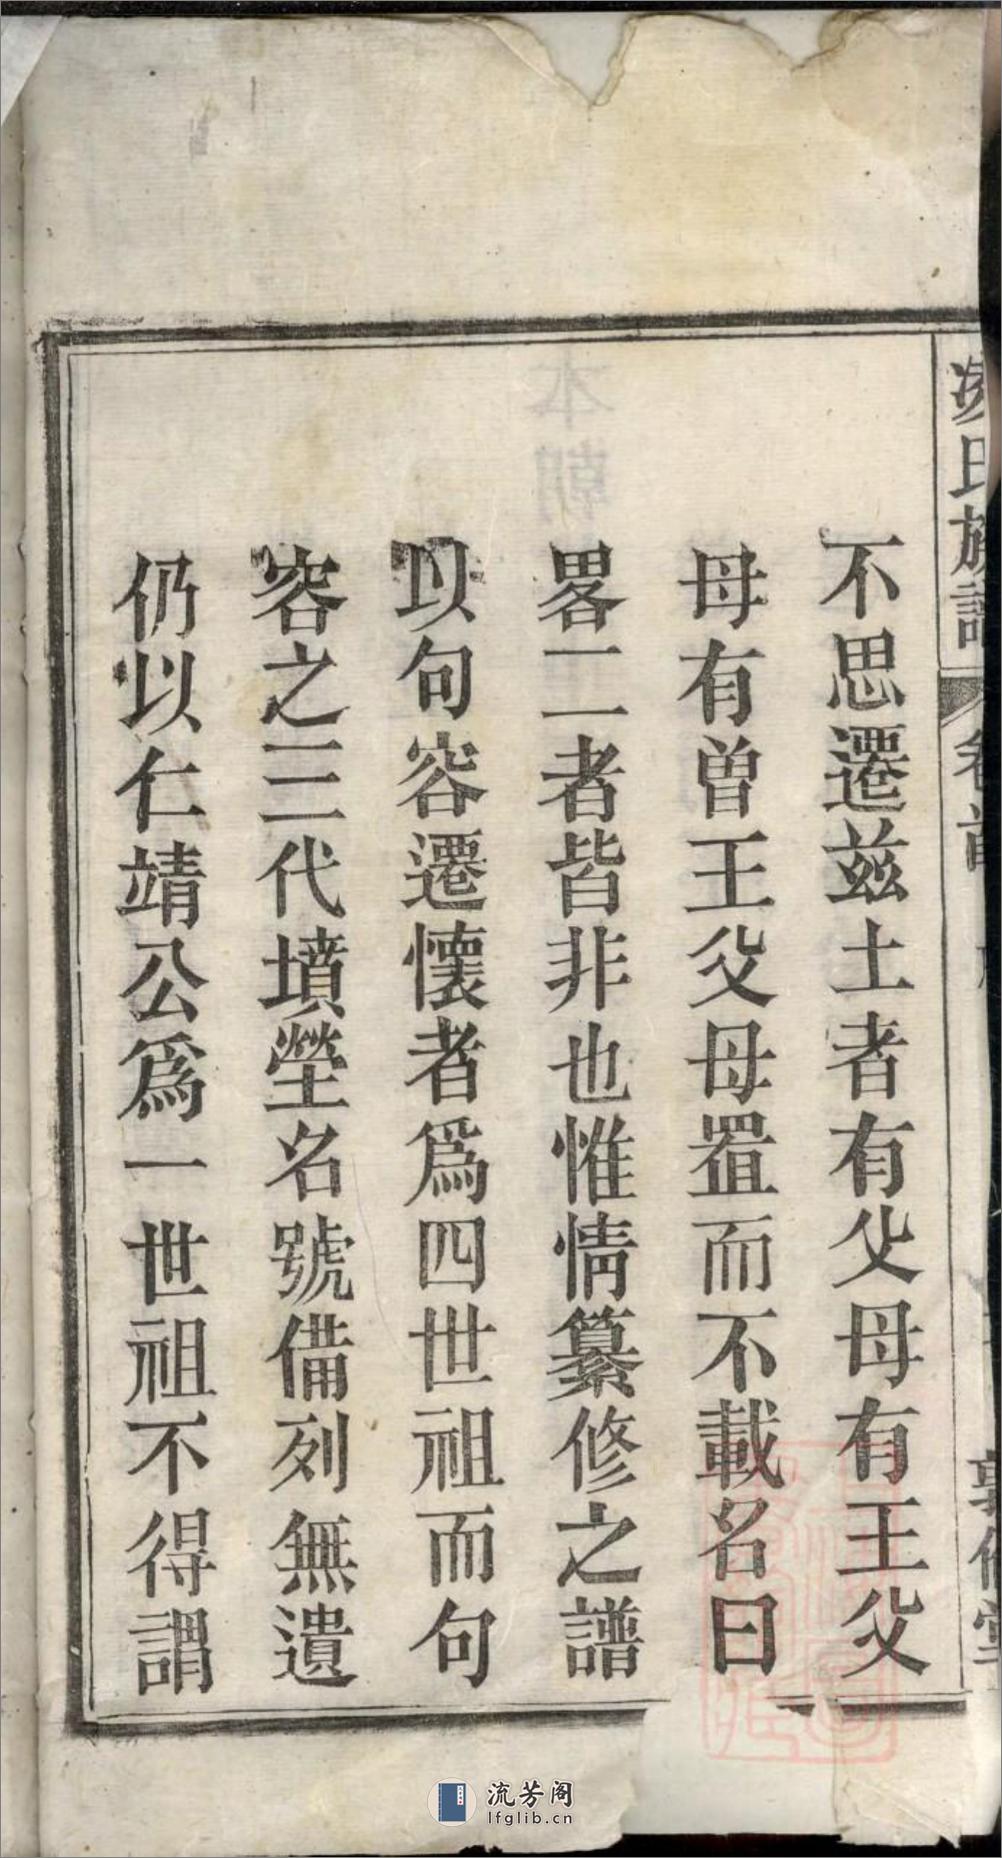 氏族譜 卷首
不思遷茲土者有父母有王父
母有曾王父母置而不載名曰
畧二者皆非也惟情纂修之譜
以句容遷懷者爲四世祖而句
容之三代墳塋名號備列無遺
仍以仁靖公爲一世祖不得謂
流芳阁
lfglib.cn